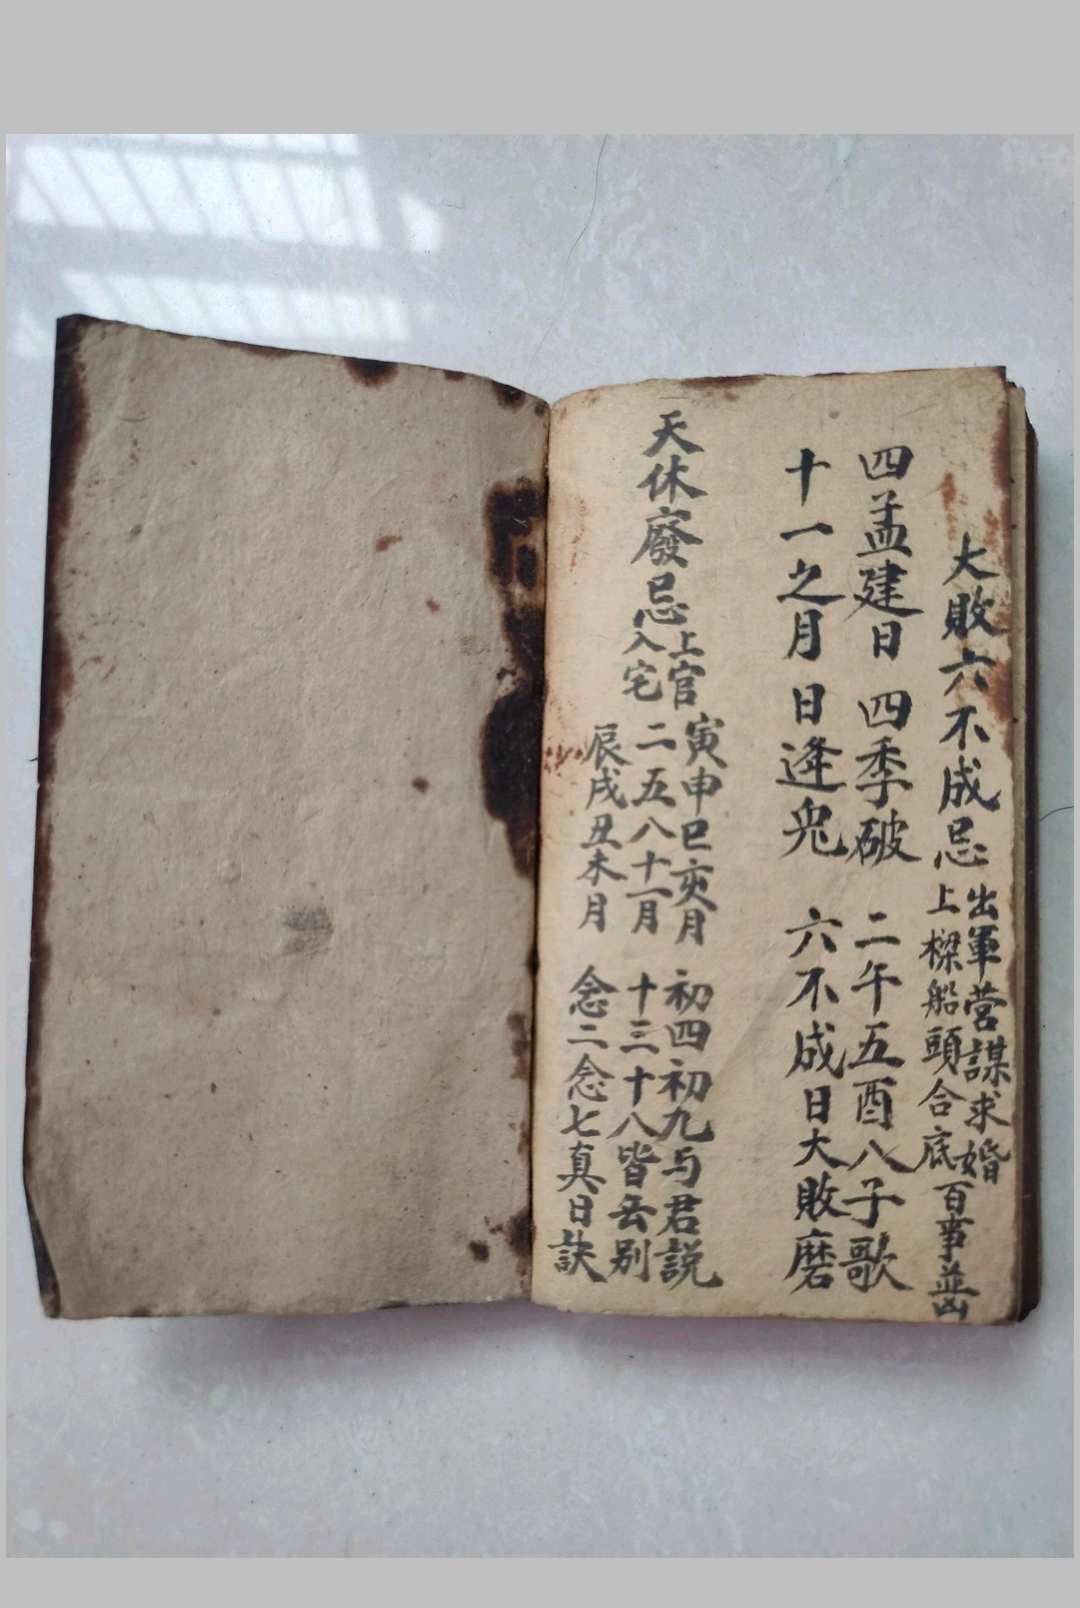 大敗六不成忌 出軍營謀求婚
上樑船頭合底 百事並凶
四孟建日 四季破 二午五酉八子歌
十一之月 日逢兎 六不成日大敗磨
天休廢忌 上官
入宅
寅申巳亥月 初四初九与君説
二五八十一月 十三十八皆云别
辰戌丑未月 念二念七真日訣